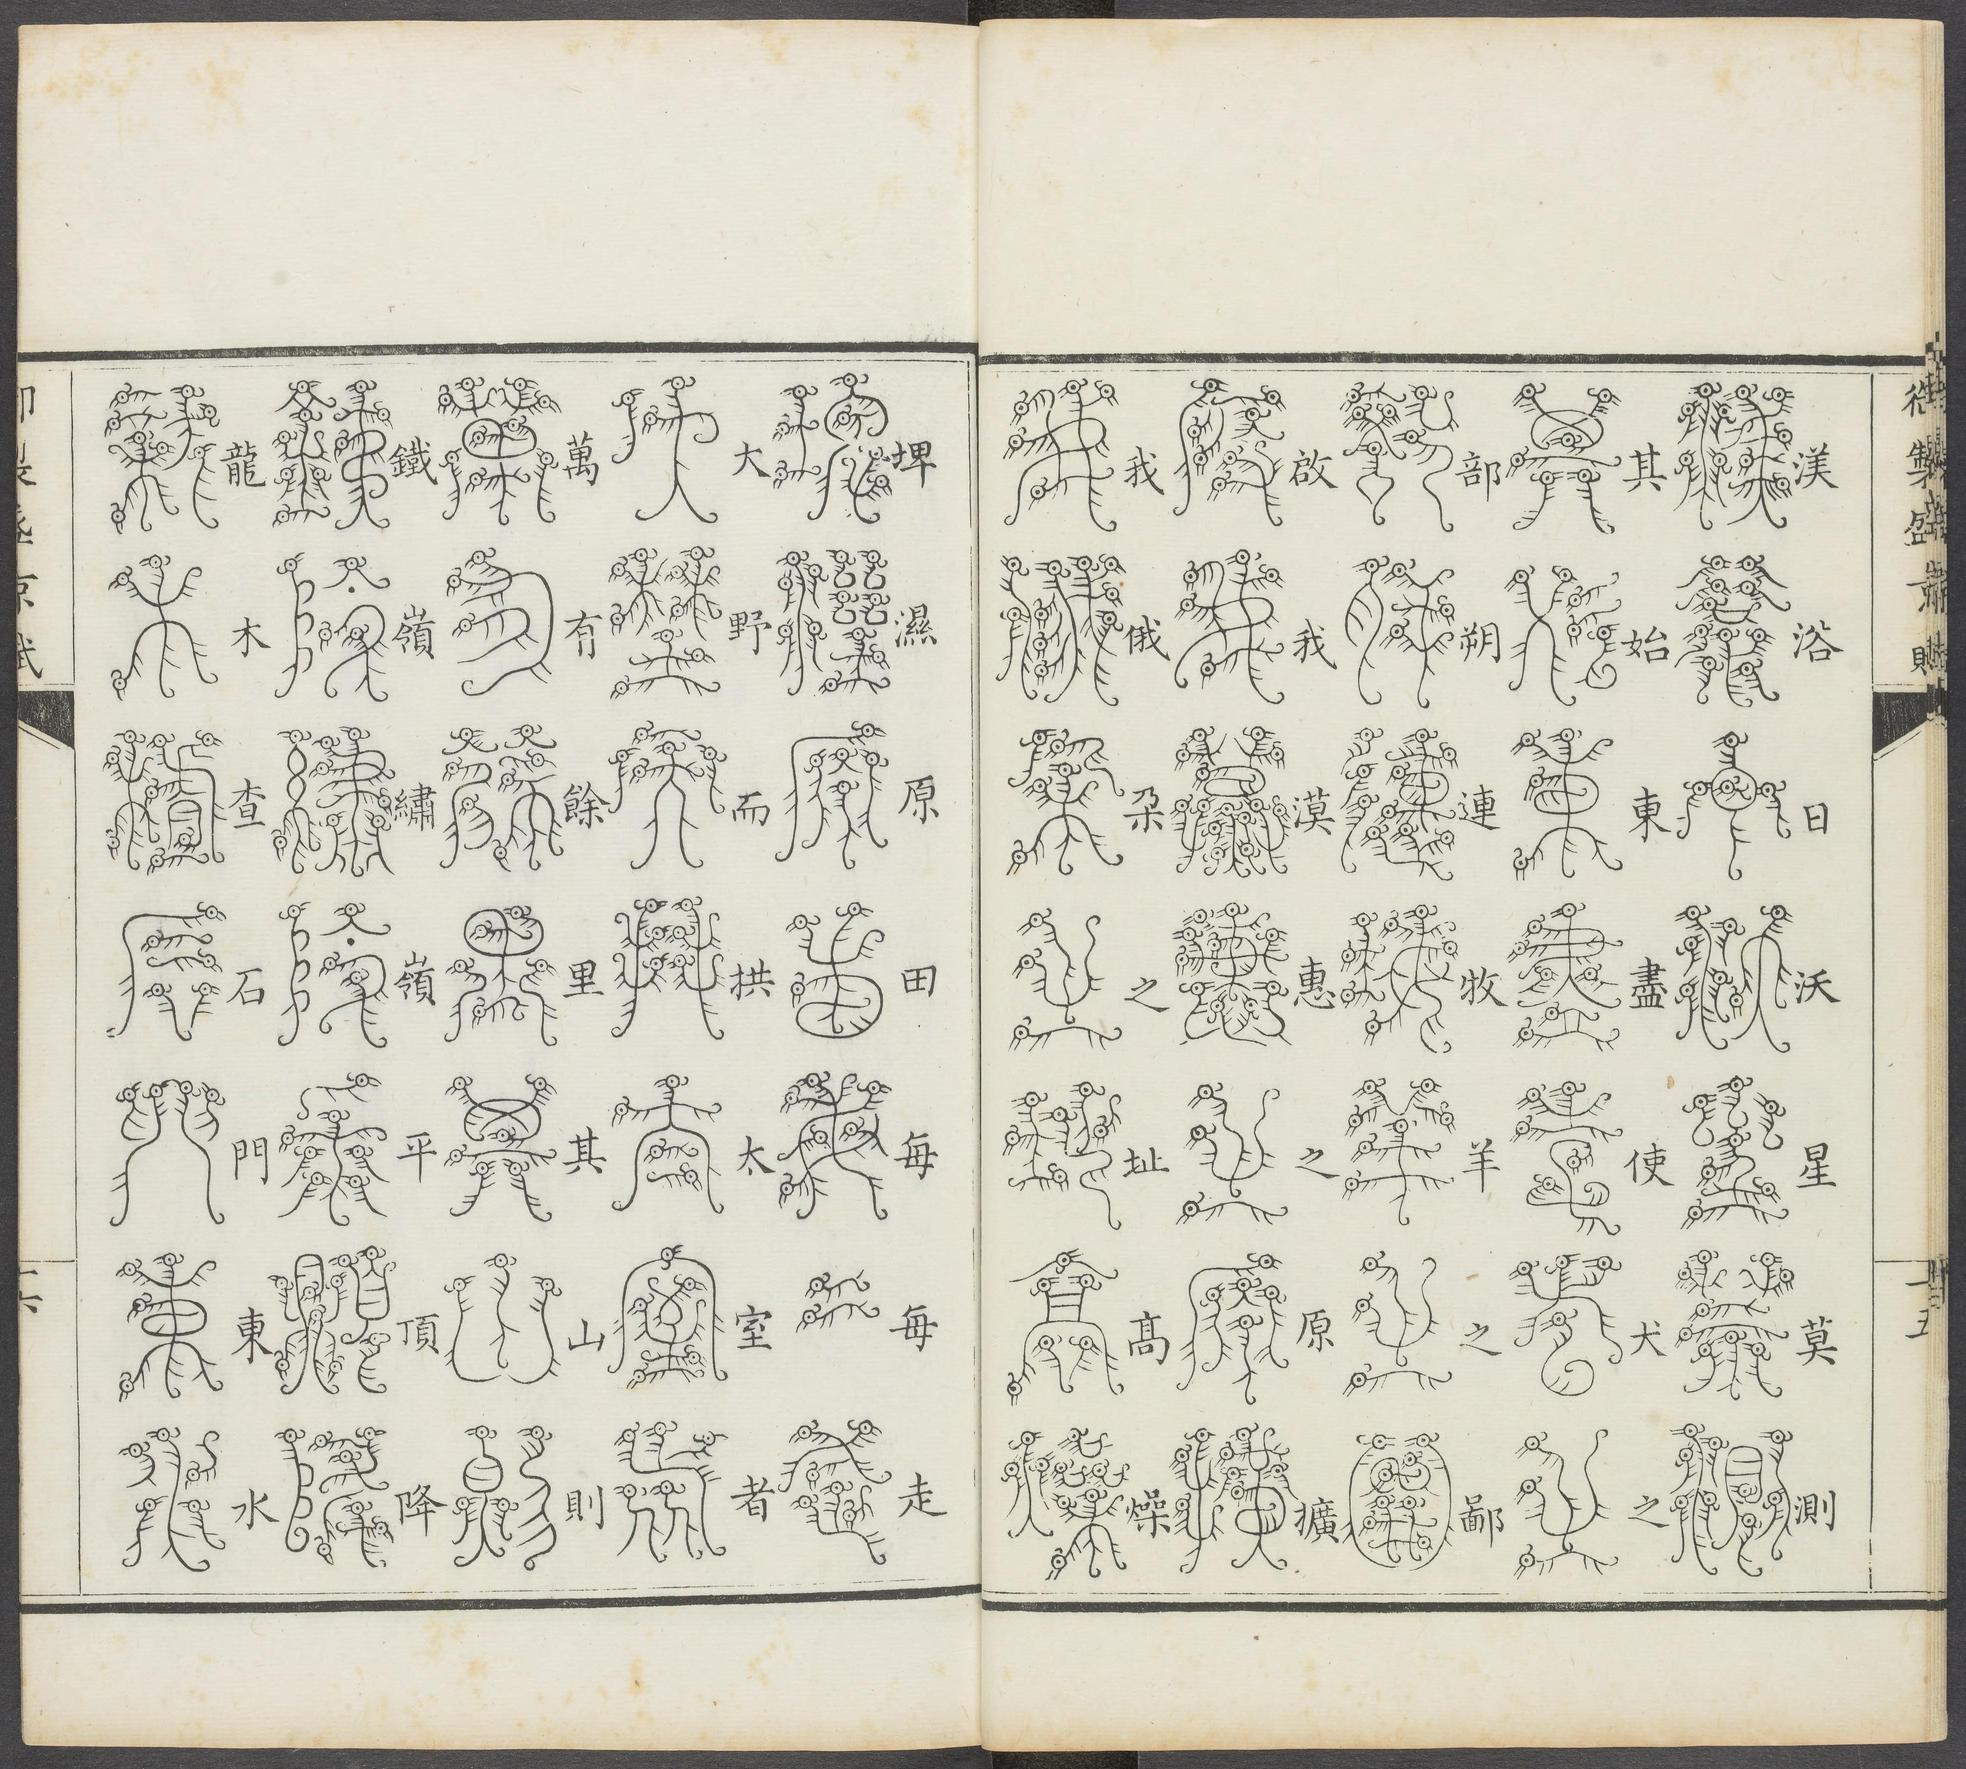 渼浴日沃星莫測
其始東盡使犬之
部朔連牧羊之鄙
啟我漠惠之原擴
我俄朶之址高燥
埤濕原田每每走
大野而拱太室者
萬有餘里其山則
鐵嶺繡嶺平頂降
龍木查石門東水